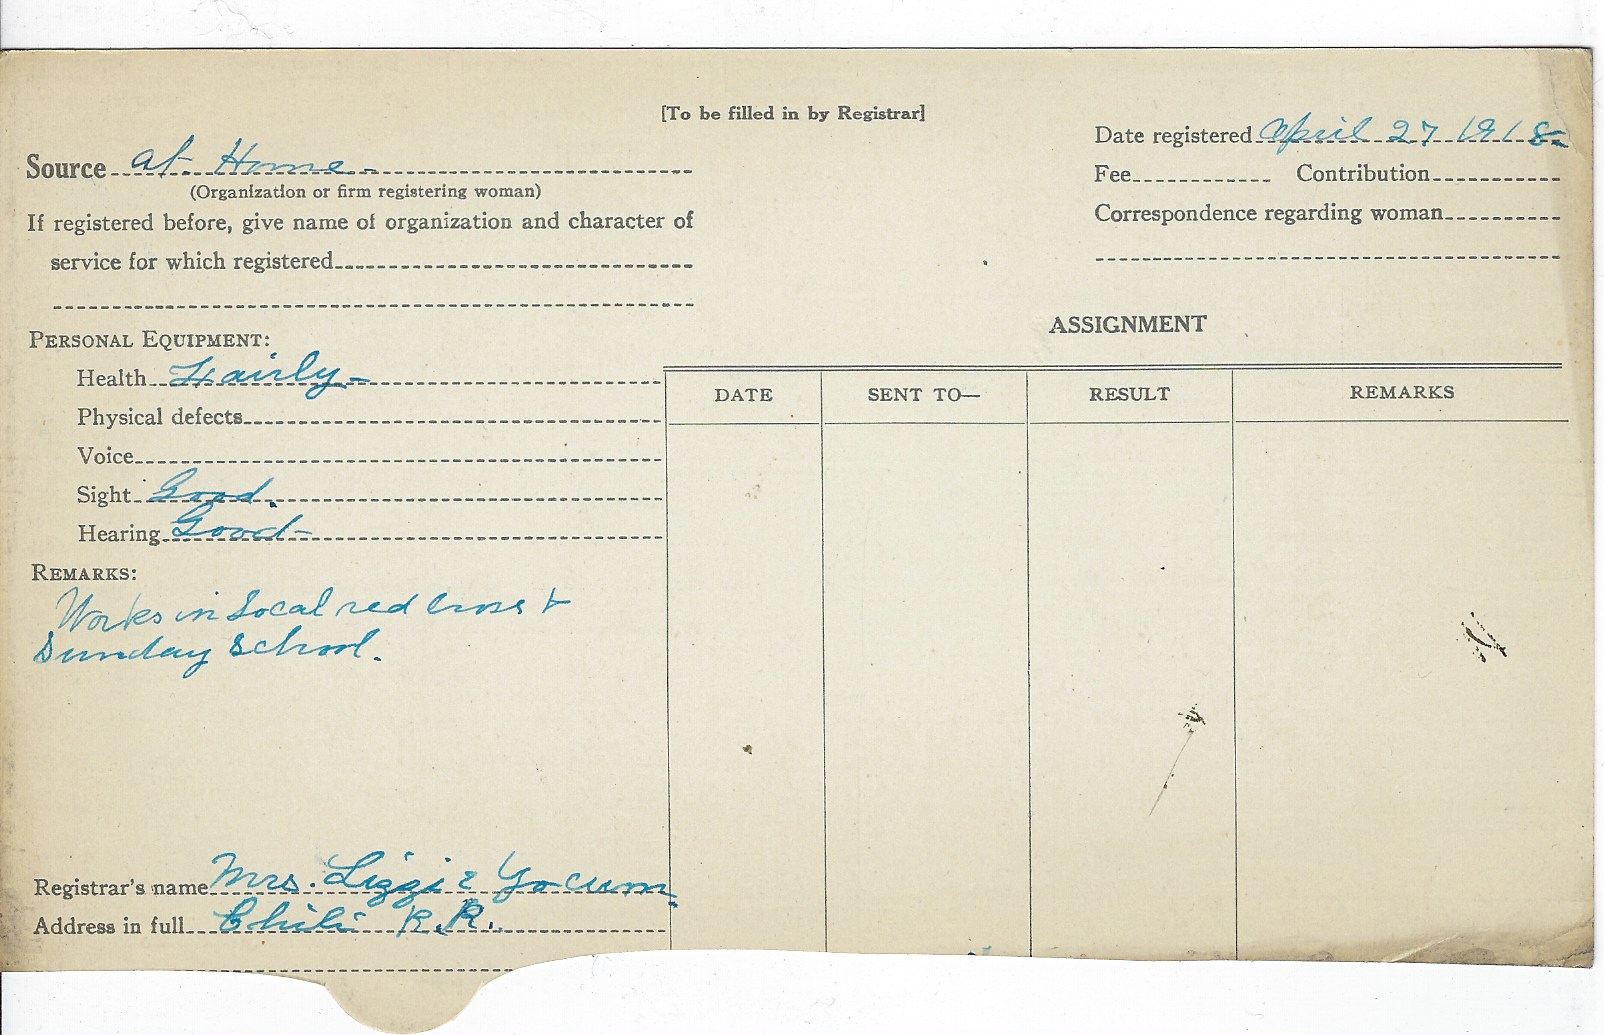 [To be filled in by Registrar]
Date registered April 27 1918
Source at Home
(Organization or firm registering woman)
Fee Contribution
If registered before, give name of organization and character of
Correspondence regarding woman
service for which registered
ASSIGNMENT
PERSONAL EQUIPMENT:
Health Fairly
DATE SENT TO— RESULT REMARKS
Physical defects
Voice
Sight Good.
Hearing Good
REMARKS:
Works in Local red Cross +
Sunday School.
Registrar's name Mrs. Lizzie Yocum
Address in full Chili R.R.